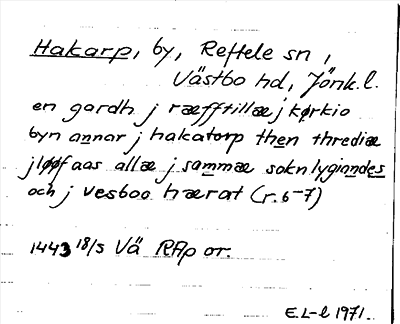 Hakarp, by, Reftele sn,
Västbo hd, Jönk.l.
en gardh j ræfftillæ j kørkio
byn annar j hakatorp then thrediæ
j løøfaas allæ j sammæ sokn lygiandes
och j vesboo hærat (r. 6-7)
1443 18/5 Vä RAp or.
E.L-l 1971.